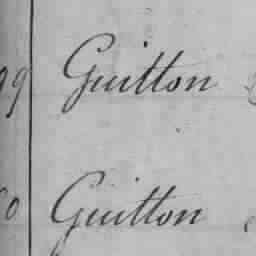 99 Guitton
Guitton